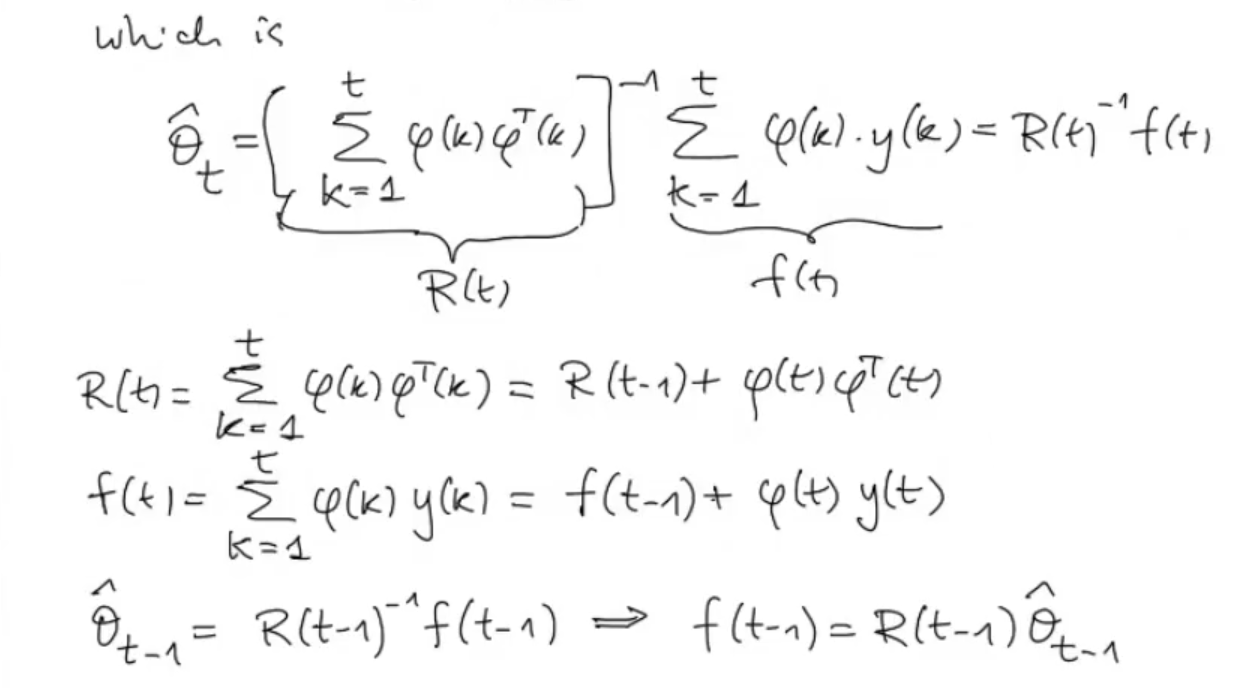 which is
θ̂_t = [ ∑_{k=1}^{t} φ(k) φ^T(k) ]^{-1} ∑_{k=1}^{t} φ(k) · y(k) = R(t)^{-1} f(t)
R(t) f(t)
R(t) = ∑_{k=1}^{t} φ(k) φ^T(k) = R(t-1) + φ(t) φ^T(t)
f(t) = ∑_{k=1}^{t} φ(k) y(k) = f(t-1) + φ(t) y(t)
θ̂_{t-1} = R(t-1)^{-1} f(t-1) ⇒ f(t-1) = R(t-1) θ̂_{t-1}